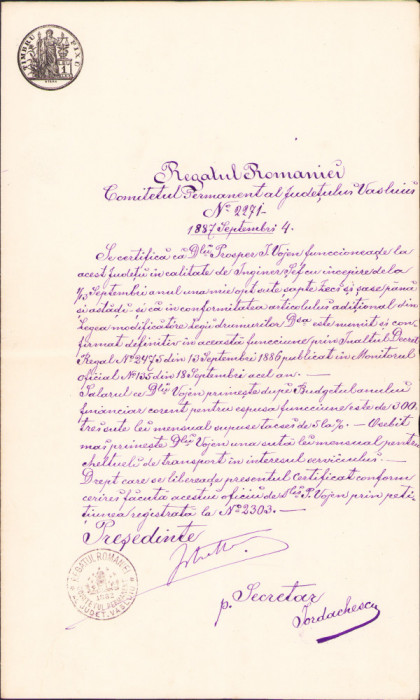 TIMBRU FIX
1
Regatul Romaniei
Comitetul Permanent al Județului Vasluiŭ
No 2271
1887 Septembri 4.
Se certifică că Dlŭ Prosper I. Vojen funcționeaḑe la
acest județŭ în calitate de Inginer Șef cu începire de la
1/13 Septembri anul una mie opt sute opt ḑeci și șase pănă
și astăḑi și că in conformitatea articolului adițional din
Legea modificătore legii drumurilor Dsa este numit și con
format definitiv in această funcțiune prin Inaltul Decret
Regal No 2475 din 13 Septembri 1886 publicat in Monitorul
oficial No 135 din 18 Septembri acel an. —
Salarul ce Dlŭ Vojen primește dupe Budgetul anului
financiar corent pentru espusa funcțiune este de 300
trei sute lei mensual supuse tacsei de 5 la %. — Osebit
mai primește Dlŭ Vojen una sută lei mensual pentru
cheltueli de transport in interesul serviciului. —
Drept care se liberează presentul certificat conform
cererei făcută acestui oficiu de Dlŭ P. Vojen prin peti
țiunea registrată la No 2303. —
Președinte
REGATUL ROMANIEI
COMITETUL PERMANENT
AL JUDEȚ. VASLUIŬ
p. Secretar
Iordachescu